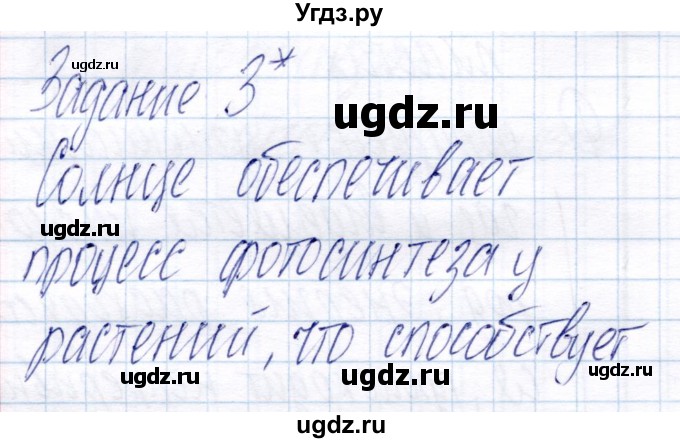 Угдз.ру
ugdz.ru
Задание 3*
ugdz.ru
Солнце обеспечивает
ugdz.ru
процесс фотосинтеза у
растений, что способствует
ugdz.ru ugdz.ru
ugdz.ru